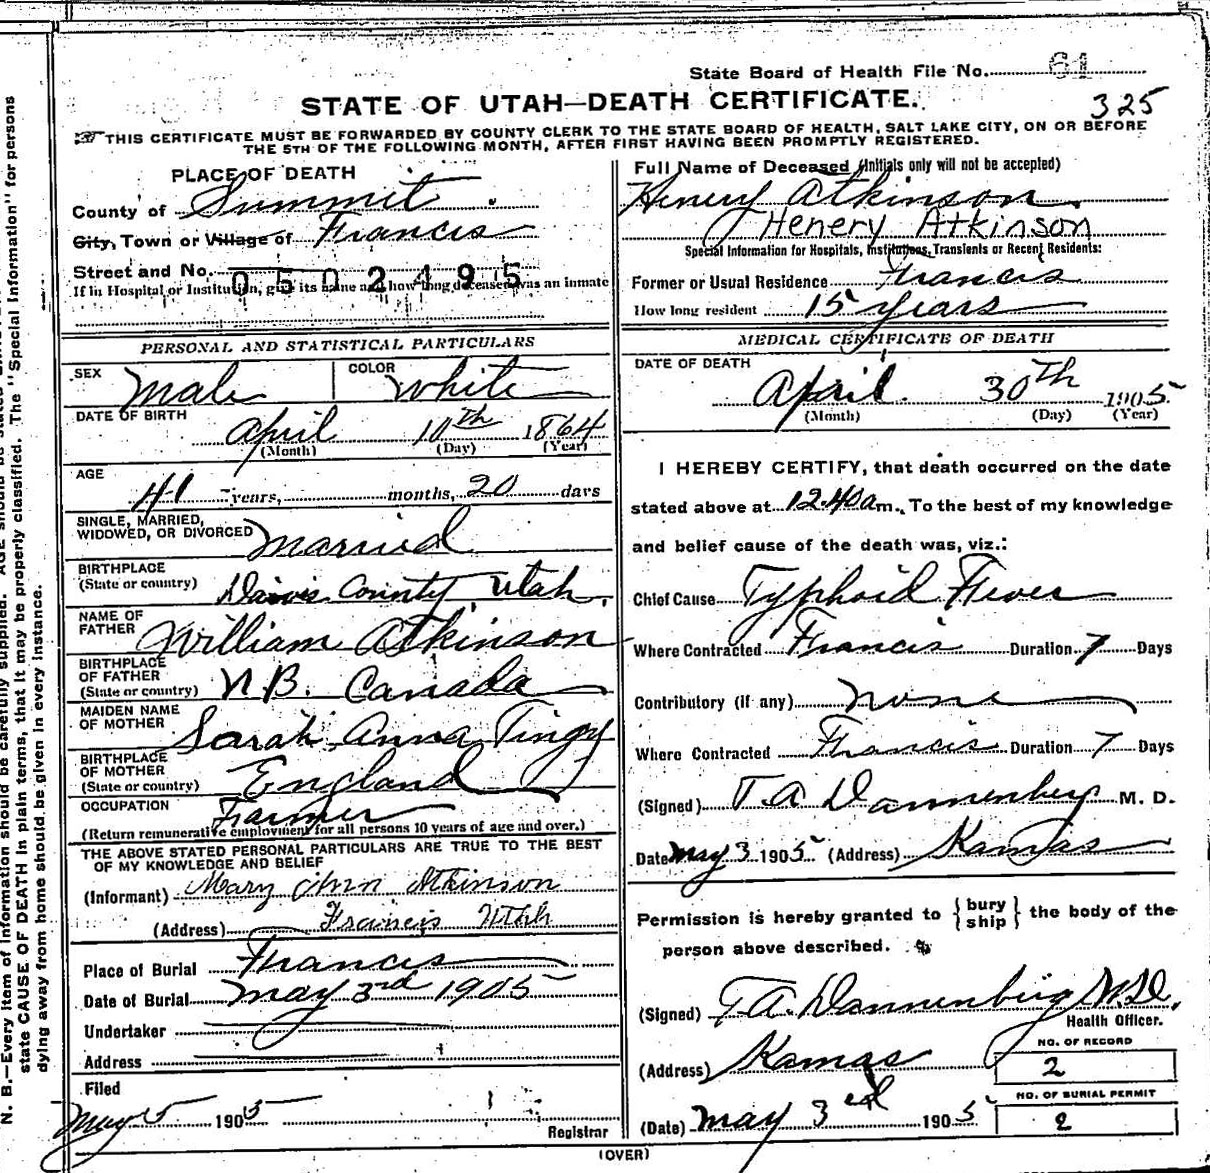 State Board of Health File No. 61
STATE OF UTAH—DEATH CERTIFICATE.
325
THIS CERTIFICATE MUST BE FORWARDED BY COUNTY CLERK TO THE STATE BOARD OF HEALTH, SALT LAKE CITY, ON OR BEFORE
THE 5TH OF THE FOLLOWING MONTH, AFTER FIRST HAVING BEEN PROMPTLY REGISTERED.
PLACE OF DEATH
County of Summit
City, Town or Village of Francis
Street and No.
0502495
If in Hospital or Institution, give its name and how long deceased was an inmate
PERSONAL AND STATISTICAL PARTICULARS
SEX Male COLOR White
DATE OF BIRTH
April 10th 1864
(Month) (Day) (Year)
AGE
41 years, months, 20 days
SINGLE, MARRIED,
WIDOWED, OR DIVORCED Married
BIRTHPLACE
(State or country) Davis County Utah.
NAME OF
FATHER William Atkinson
BIRTHPLACE
OF FATHER
(State or country) N.B. Canada
MAIDEN NAME
OF MOTHER Sarah Anna Tingy
BIRTHPLACE
OF MOTHER
(State or country) England
OCCUPATION Farmer
(Return remunerative employment for all persons 10 years of age and over.)
THE ABOVE STATED PERSONAL PARTICULARS ARE TRUE TO THE BEST
OF MY KNOWLEDGE AND BELIEF
(Informant) Mary Ann Atkinson
(Address) Francis Utah
Place of Burial Francis
Date of Burial May 3rd 1905
Undertaker
Address
Filed
May 5 1905
Registrar
Full Name of Deceased (Initials only will not be accepted)
Henery Atkinson.
Henery Atkinson
Special Information for Hospitals, Institutions, Transients or Recent Residents:
Former or Usual Residence Francis
How long resident 15 years
MEDICAL CERTIFICATE OF DEATH
DATE OF DEATH
April 30th 1905
(Month) (Day) (Year)
I HEREBY CERTIFY, that death occurred on the date
stated above at 12.40 a m. To the best of my knowledge
and belief cause of the death was, viz.:
Chief Cause Typhoid Fever
Where Contracted Francis Duration 7 Days
Contributory (if any) none
Where Contracted Francis Duration 7 Days
(Signed) T.A Dannenberg M. D.
Date May 3 1905 (Address) Kamas
Permission is hereby granted to {bury
ship} the body of the
person above described.
(Signed) T.A. Dannenberg M.D.
Health Officer.
(Address) Kamas
NO. OF RECORD
2
NO. OF BURIAL PERMIT
2
(Date) May 3rd 1905
(OVER)
N. B.—Every item of information should be carefully supplied. AGE should be stated
state CAUSE OF DEATH in plain terms, that it may be properly classified. The "Special Information" for persons
dying away from home should be given in every instance.